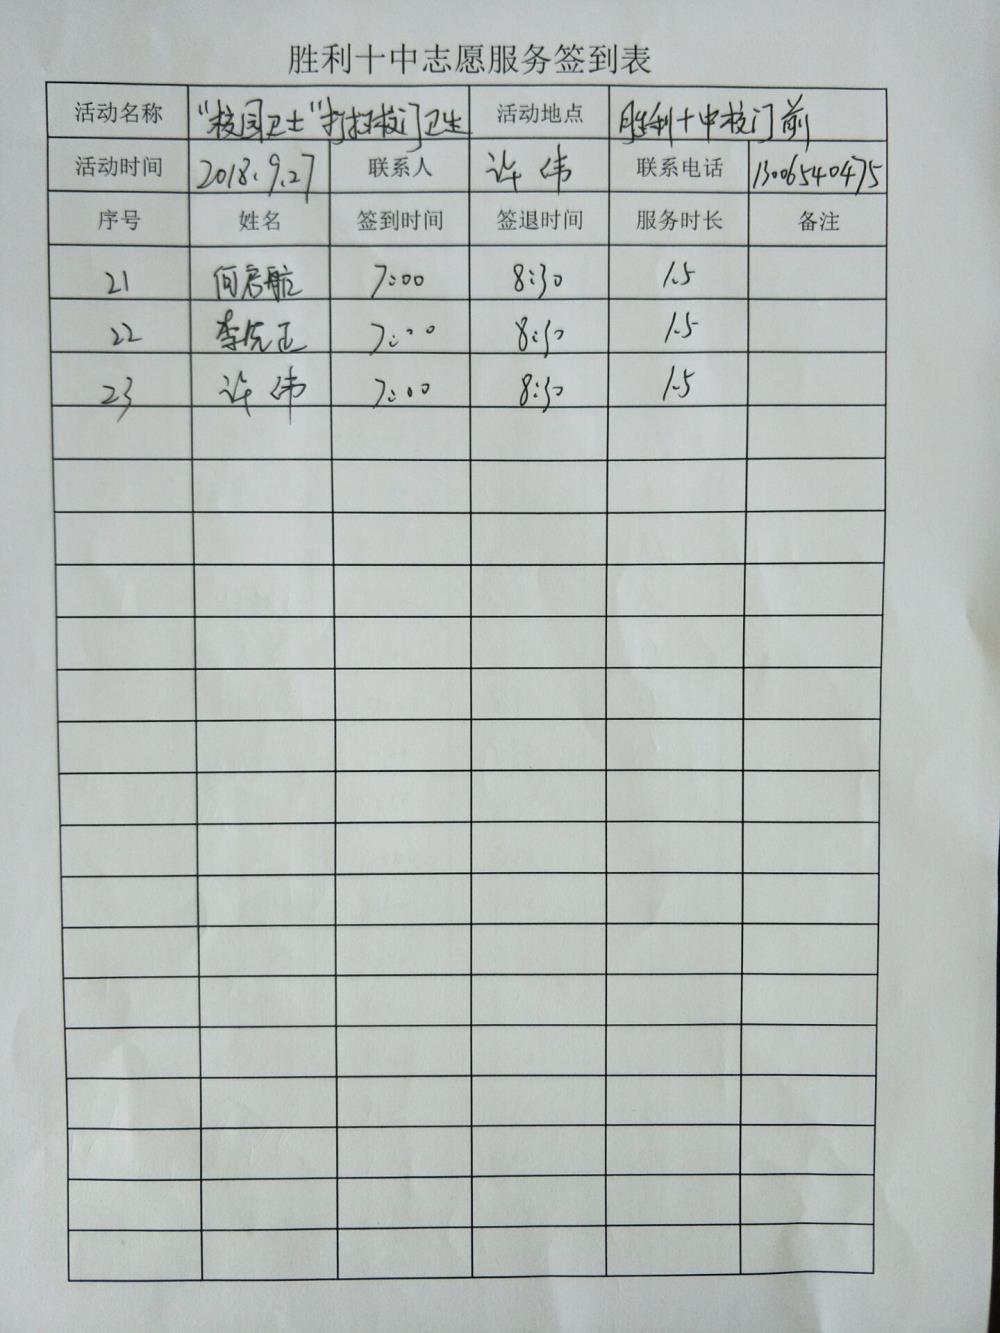 胜利十中志愿服务签到表
活动名称 "校园卫士"打扫校门卫生 活动地点 胜利十中校门前
活动时间 2018.9.27 联系人 许伟 联系电话 13006540475
序号 姓名 签到时间 签退时间 服务时长 备注
21 何启航 7:00 8:30 1.5
22 李先正 7:00 8:30 1.5
23 许伟 7:00 8:30 1.5